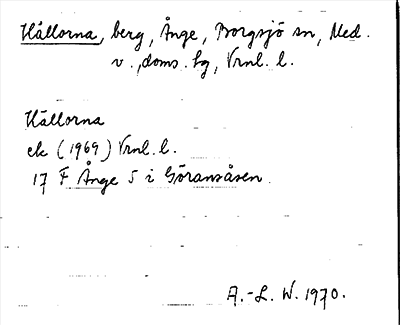 Hällorna, berg, Ånge, Borgsjö sn, Med.
v., doms. hg, Vrnl. l.
Hällorna
ek (1969) Vrnl. l.
17 F Ånge 5 i Göransåsen.
A.-L. W. 1970.